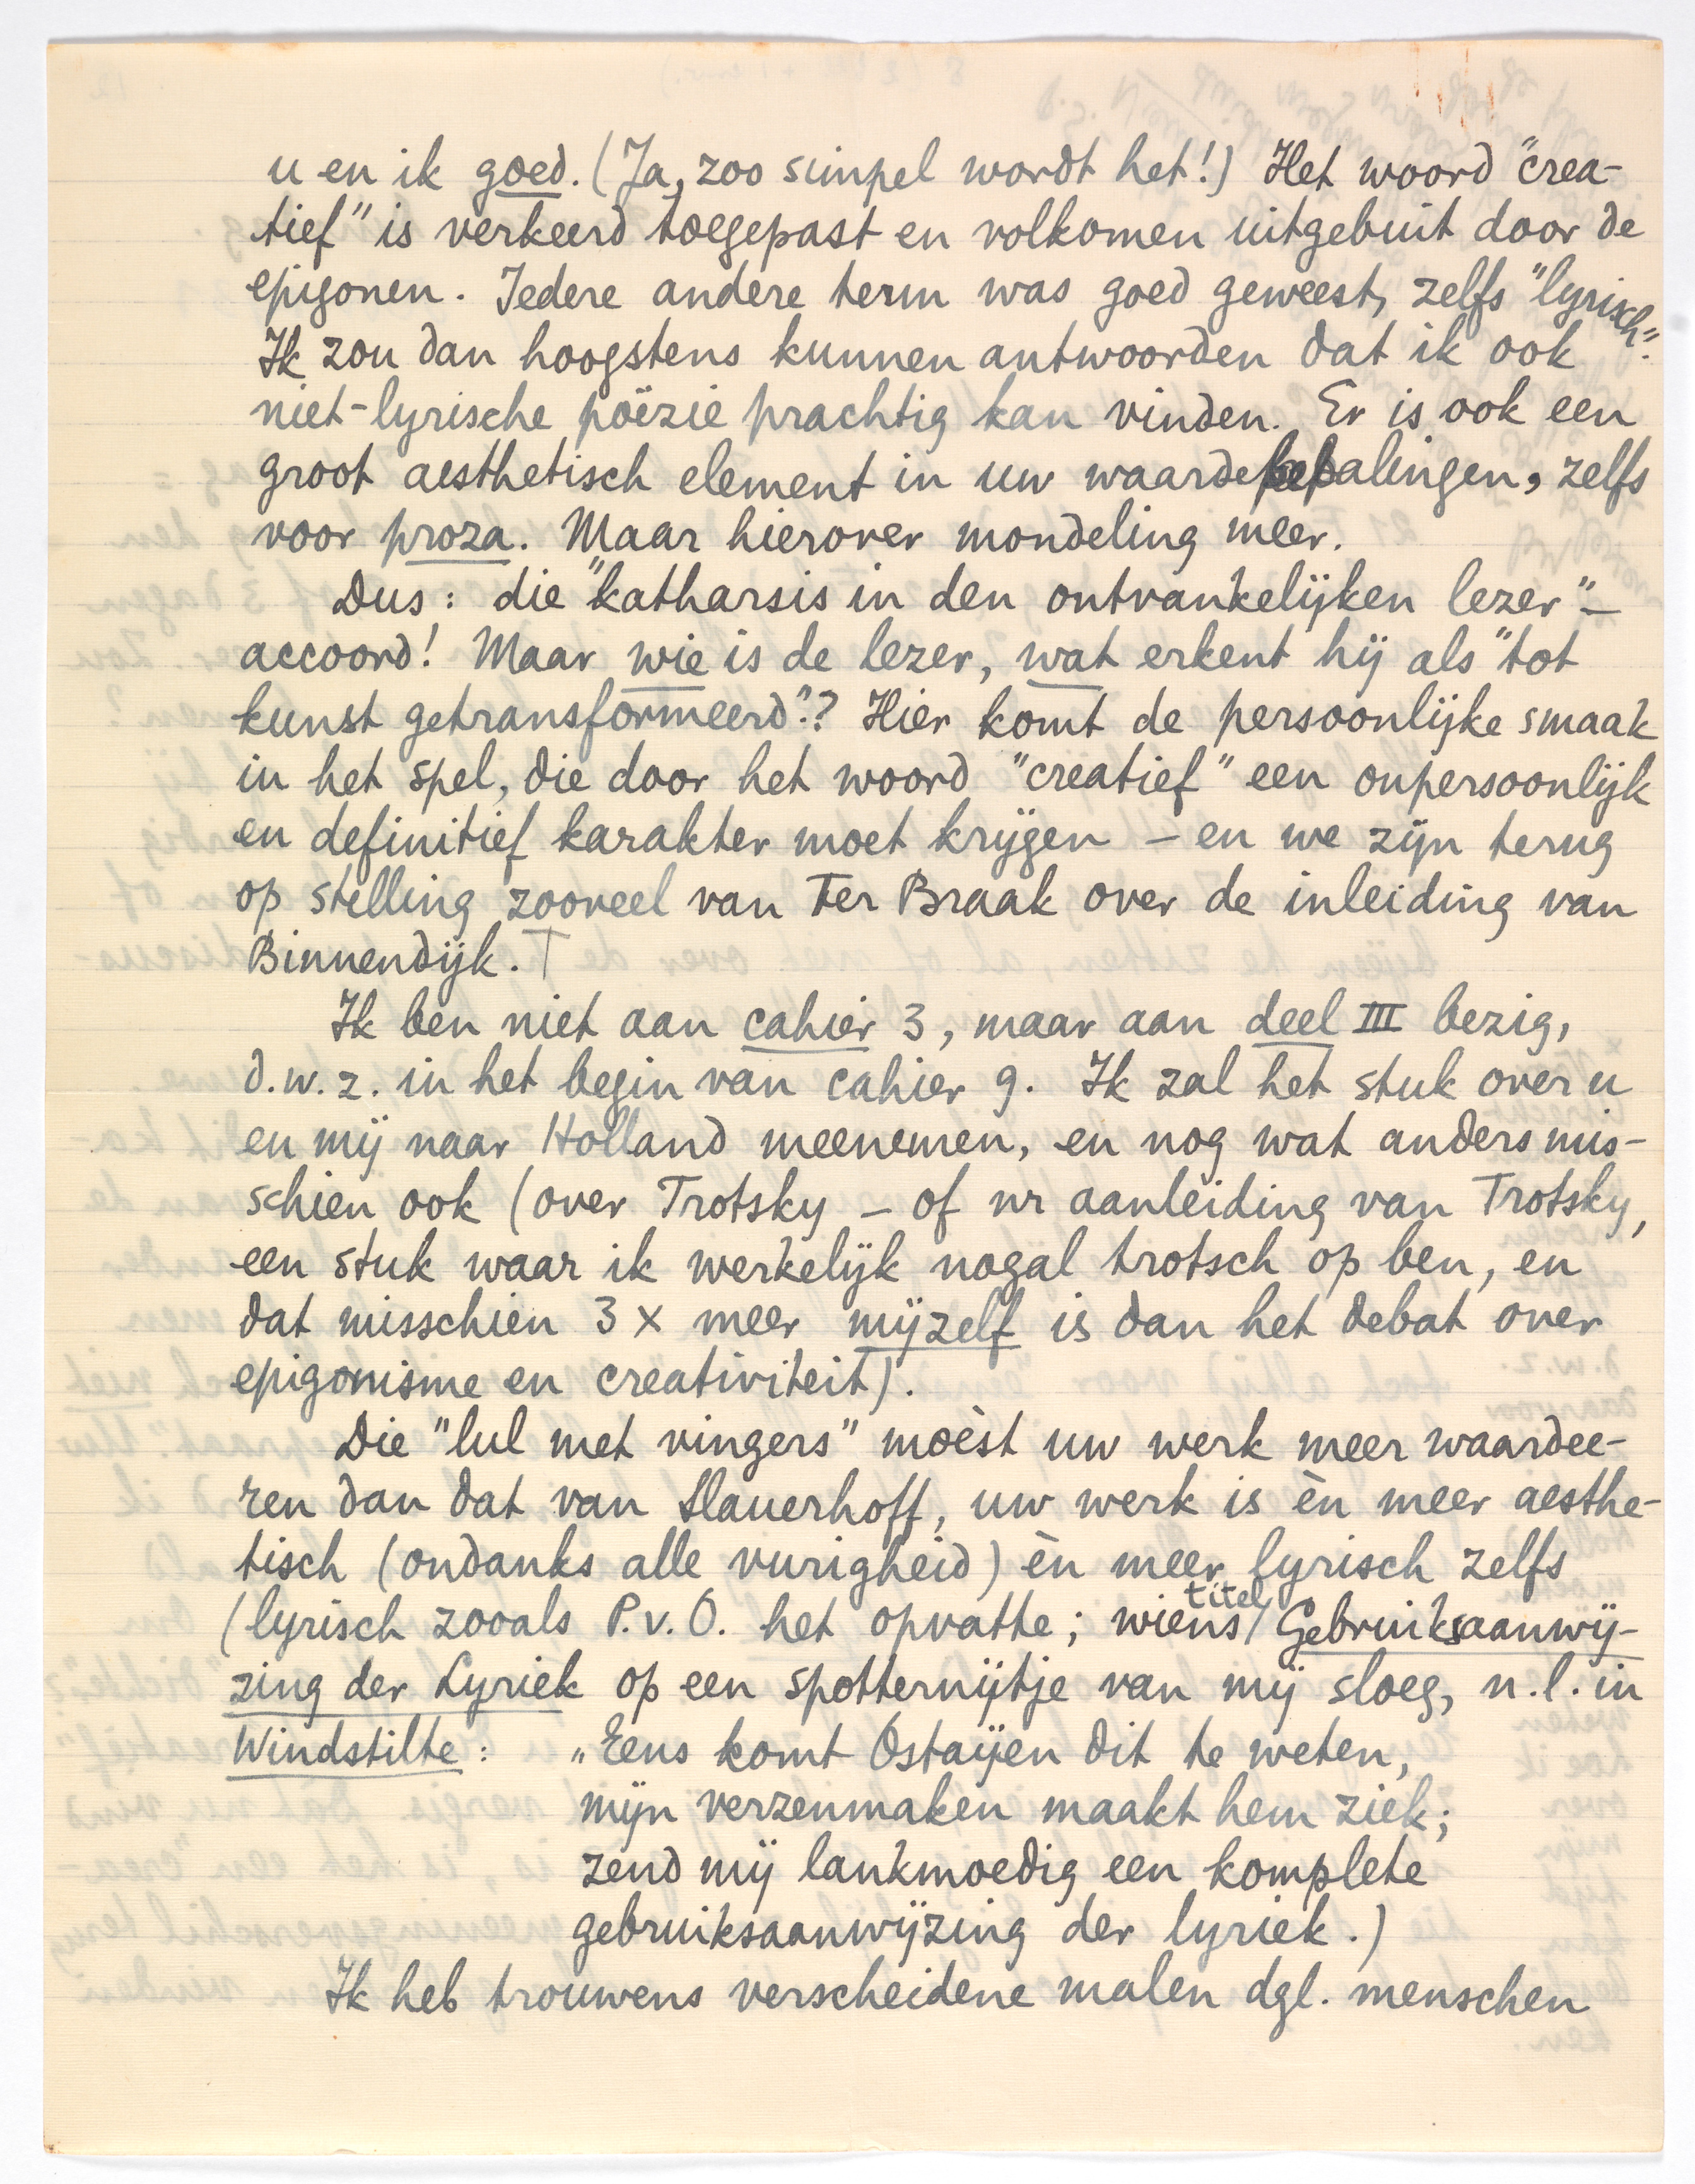 u en ik goed. (Ja, zoo simpel wordt het!) Het woord "crea-
tief" is verkeerd toegepast en volkomen uitgebuit door de
epigonen. Iedere andere term was goed geweest, zelfs "lyrisch".
Ik zou dan hoogstens kunnen antwoorden dat ik ook
niet-lyrische poëzie prachtig kan vinden. Er is ook een
groot aesthetisch element in uw waardebepalingen, zelfs
voor proza. Maar hierover mondeling meer.
Dus: die "katharsis in den ontvankelijken lezer" –
accoord! Maar wie is de lezer, wat erkent hij als "tot
kunst getransformeerd"? Hier komt de persoonlijke smaak
in het spel, die door het woord "creatief" een onpersoonlijk
en definitief karakter moet krijgen – en we zijn terug
op stelling zooveel van Ter Braak over de inleiding van
Binnendijk. T
Ik ben niet aan cahier 3, maar aan deel III bezig,
d.w.z. in het begin van cahier 9. Ik zal het stuk over u
en mij naar Holland meenemen, en nog wat anders mis-
schien ook (over Trotsky – of nr aanleiding van Trotsky,
een stuk waar ik werkelijk nogal trotsch op ben, en
dat misschien 3 x meer mijzelf is dan het debat over
epigonisme en creativiteit).
Die "lul met vingers" moèst uw werk meer waardee-
ren dan dat van Slauerhoff, uw werk is èn meer aesthe-
tisch (ondanks alle vurigheid) èn meer lyrisch zelfs
(lyrisch zooals P.v.O. het opvatte; wiens titel Gebruiksaanwij-
zing der Lyriek op een spotternijtje van mij sloeg, n.l. in
Windstilte: „Eens komt Ostaijen dit te weten,
mijn verzenmaken maakt hem ziek;
zend mij lankmoedig een komplete
gebruiksaanwijzing der lyriek.)
Ik heb trouwens verscheidene malen dgl. menschen